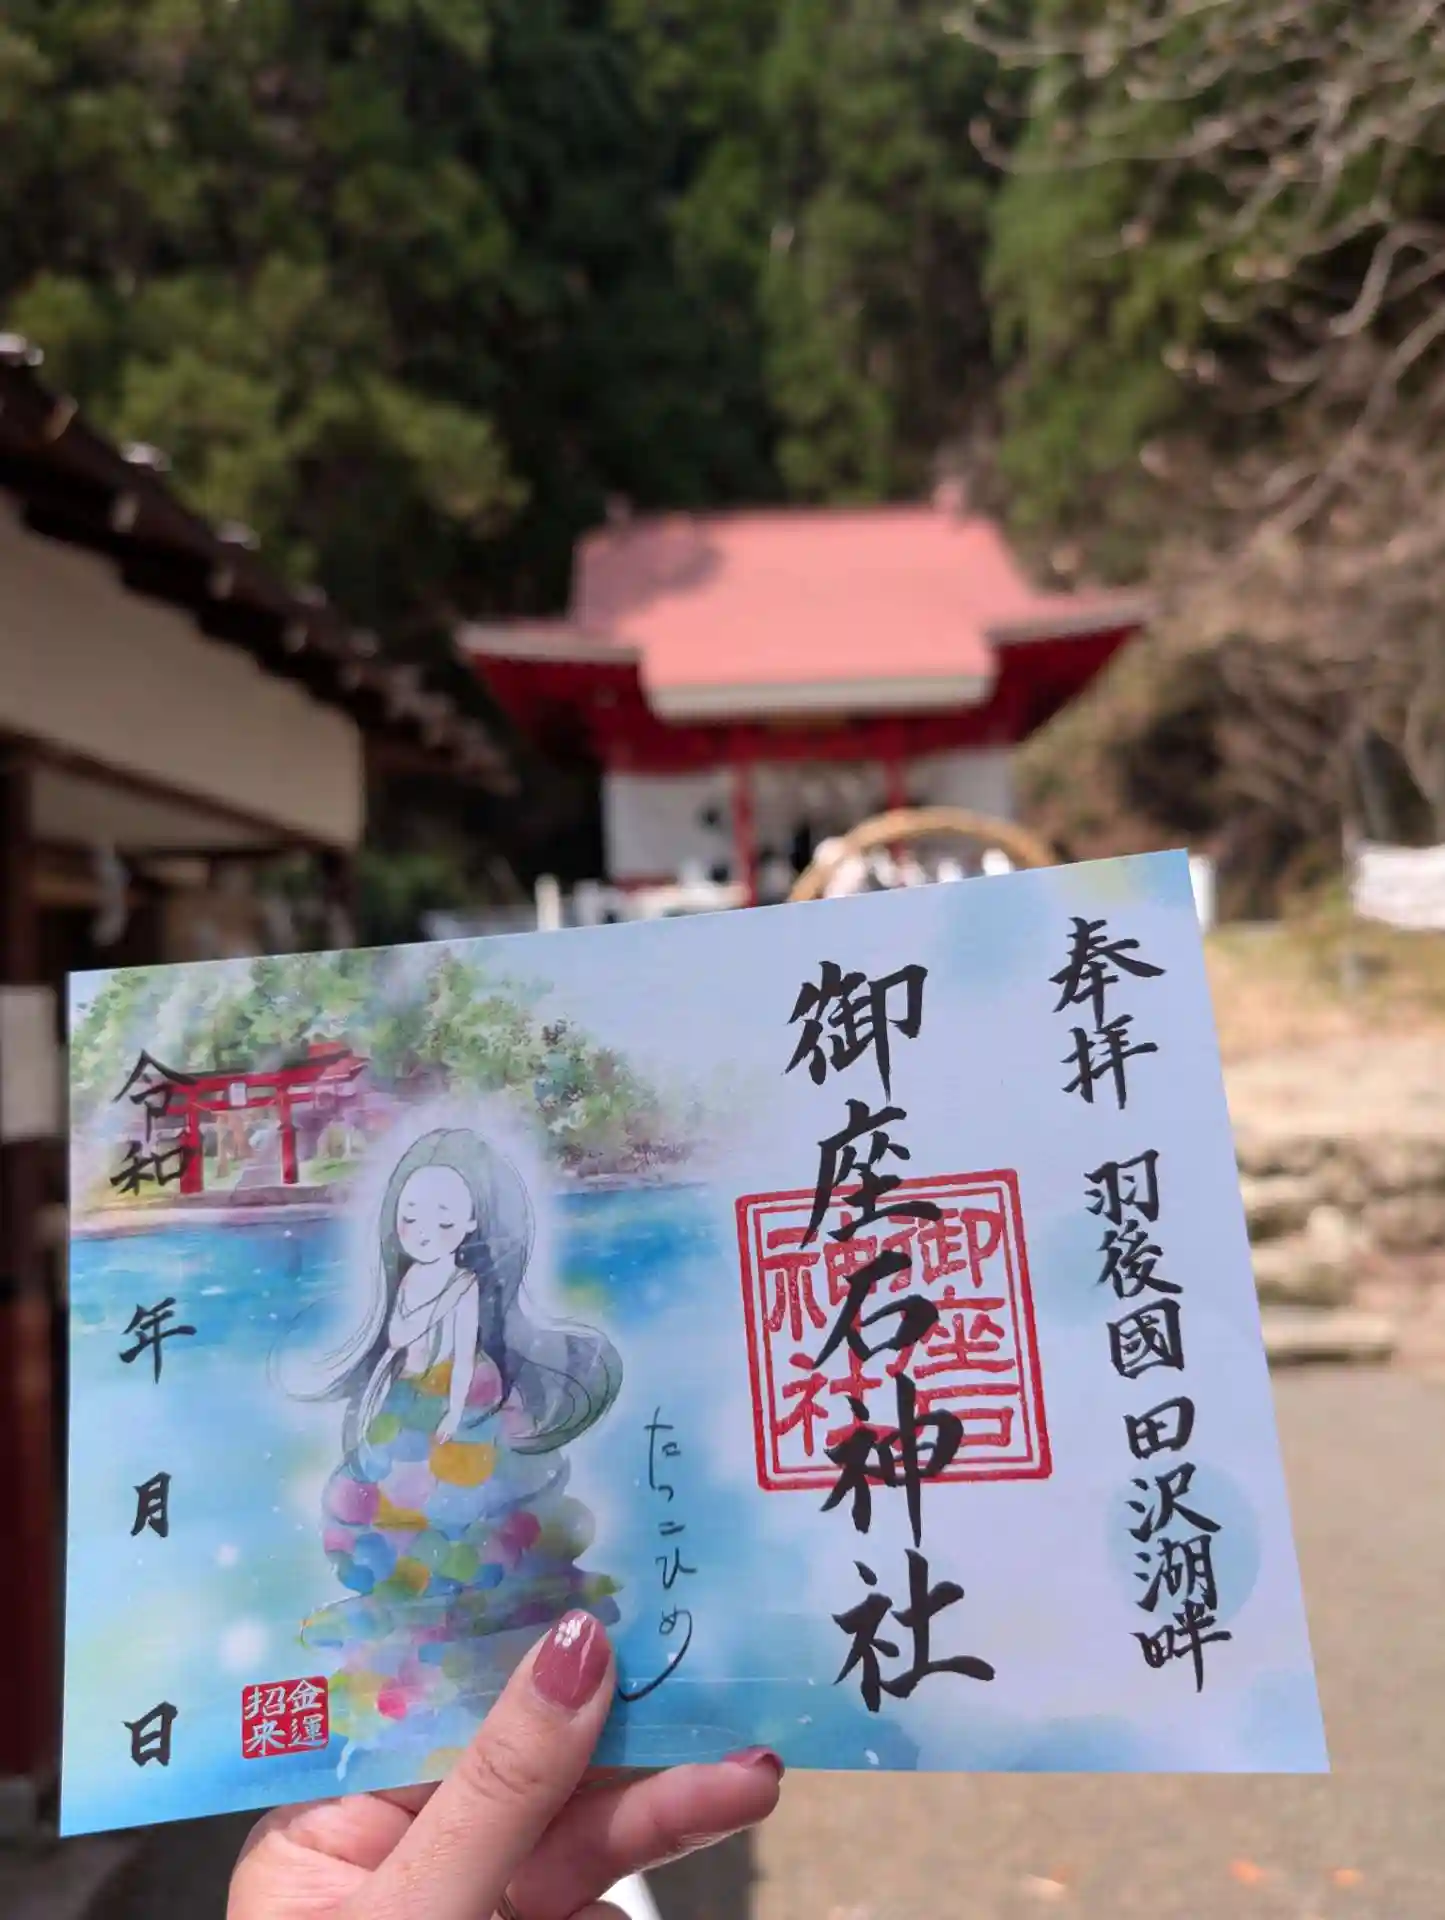 奉拝 羽後國 田沢湖畔
御座石神社
御座石
神社
たつこひめ
金運
招来
令和 年 月 日